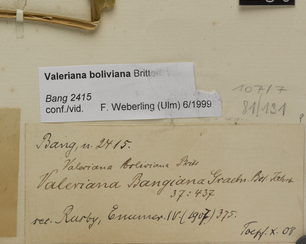 Valeriana boliviana Britt
Bang 2415
conf./vid. F. Weberling (Ulm) 6/1999
107/7
81/131
Bang, n. 2415.
Valeriana boliviana Britt
Valeriana Bangiana Graebn. Bot. Jahrb.
37: 437
rec. Rusby, Enumer. IV (1907) 375.
X. 08